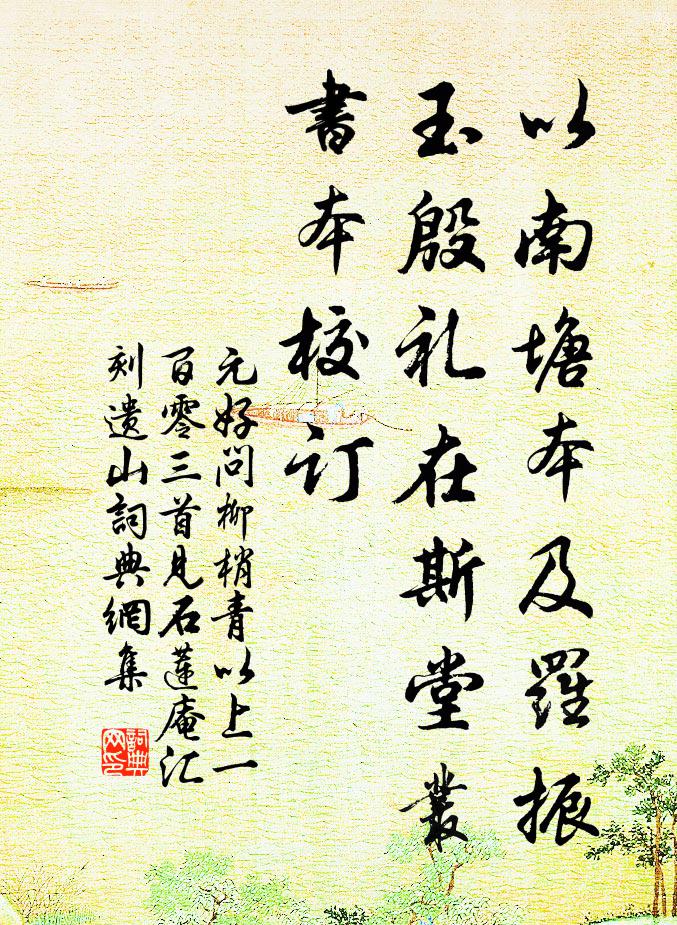 以南塘本及羅振
玉殷礼在斯堂叢
書本校订
元好问柳梢青以上一
百零三首见石蓮庵汇
刻遗山詞典網集
詞典
网印